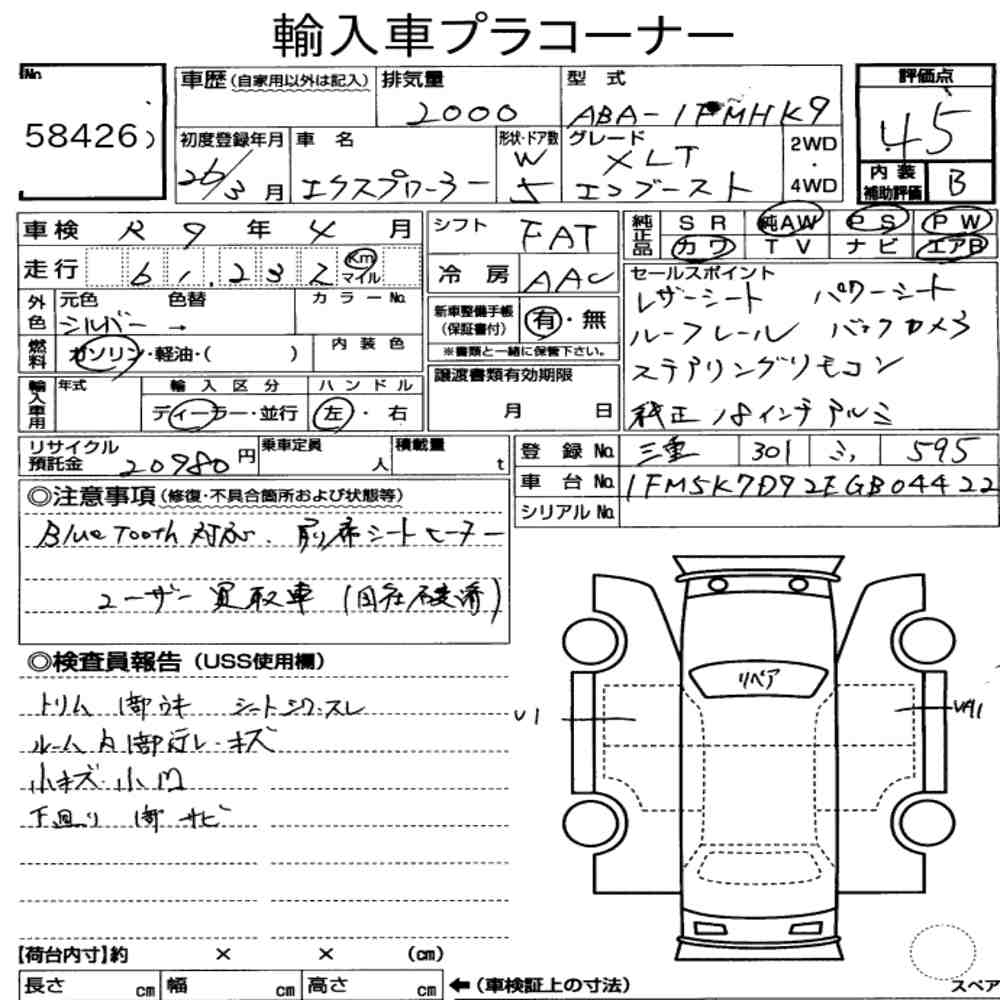 輸入車プラコーナー
No.
58426
車歴(自家用以外は記入)
排気量
2000
型 式
ABA-1FMHK9
評価点
4.5
内装補助評価
B
初度登録年月
26/3月
車 名
エクスプローラー
形状・ドア数
W
5
グレード
XLT
エコブースト
2WD
・
4WD
車検 R 9 年 4 月
走行 61,232 Km マイル
シフト FAT
冷 房 AAC
純正品
SR 純AW PS PW
カワ TV ナビ エアB
外色
元色 色替
シルバー →
カラーNo.
燃料
ガソリン・軽油・( )
内装色
新車整備手帳(保証書付)
有・無
※書類と一緒に保管下さい。
セールスポイント
レザーシート パワーシート
ルーフレール バックカメラ
ステアリングリモコン
純正18インチアルミ
輸入車用
年式
輸入区分
ディーラー・並行
ハンドル
左・右
譲渡書類有効期限
月 日
リサイクル預託金 20980円
乗車定員 人
積載量 t
登録No. 三重 301 ミ 595
車台No. 1FM5K7D92EGB04422
シリアルNo.
◎注意事項(修復・不具合箇所および状態等)
Blue Tooth 対応、前席シートヒーター
ユーザー買取車
◎検査員報告(USS使用欄)
トリム 1部ウキ シートシワ・スレ
ルーム内1部汚レ・キズ
小キズ・小凹
下廻り 1部サビ
リペア
U1
【荷台内寸】約 × × (cm)
長さ cm 幅 cm 高さ cm
←(車検証上の寸法)
スペア